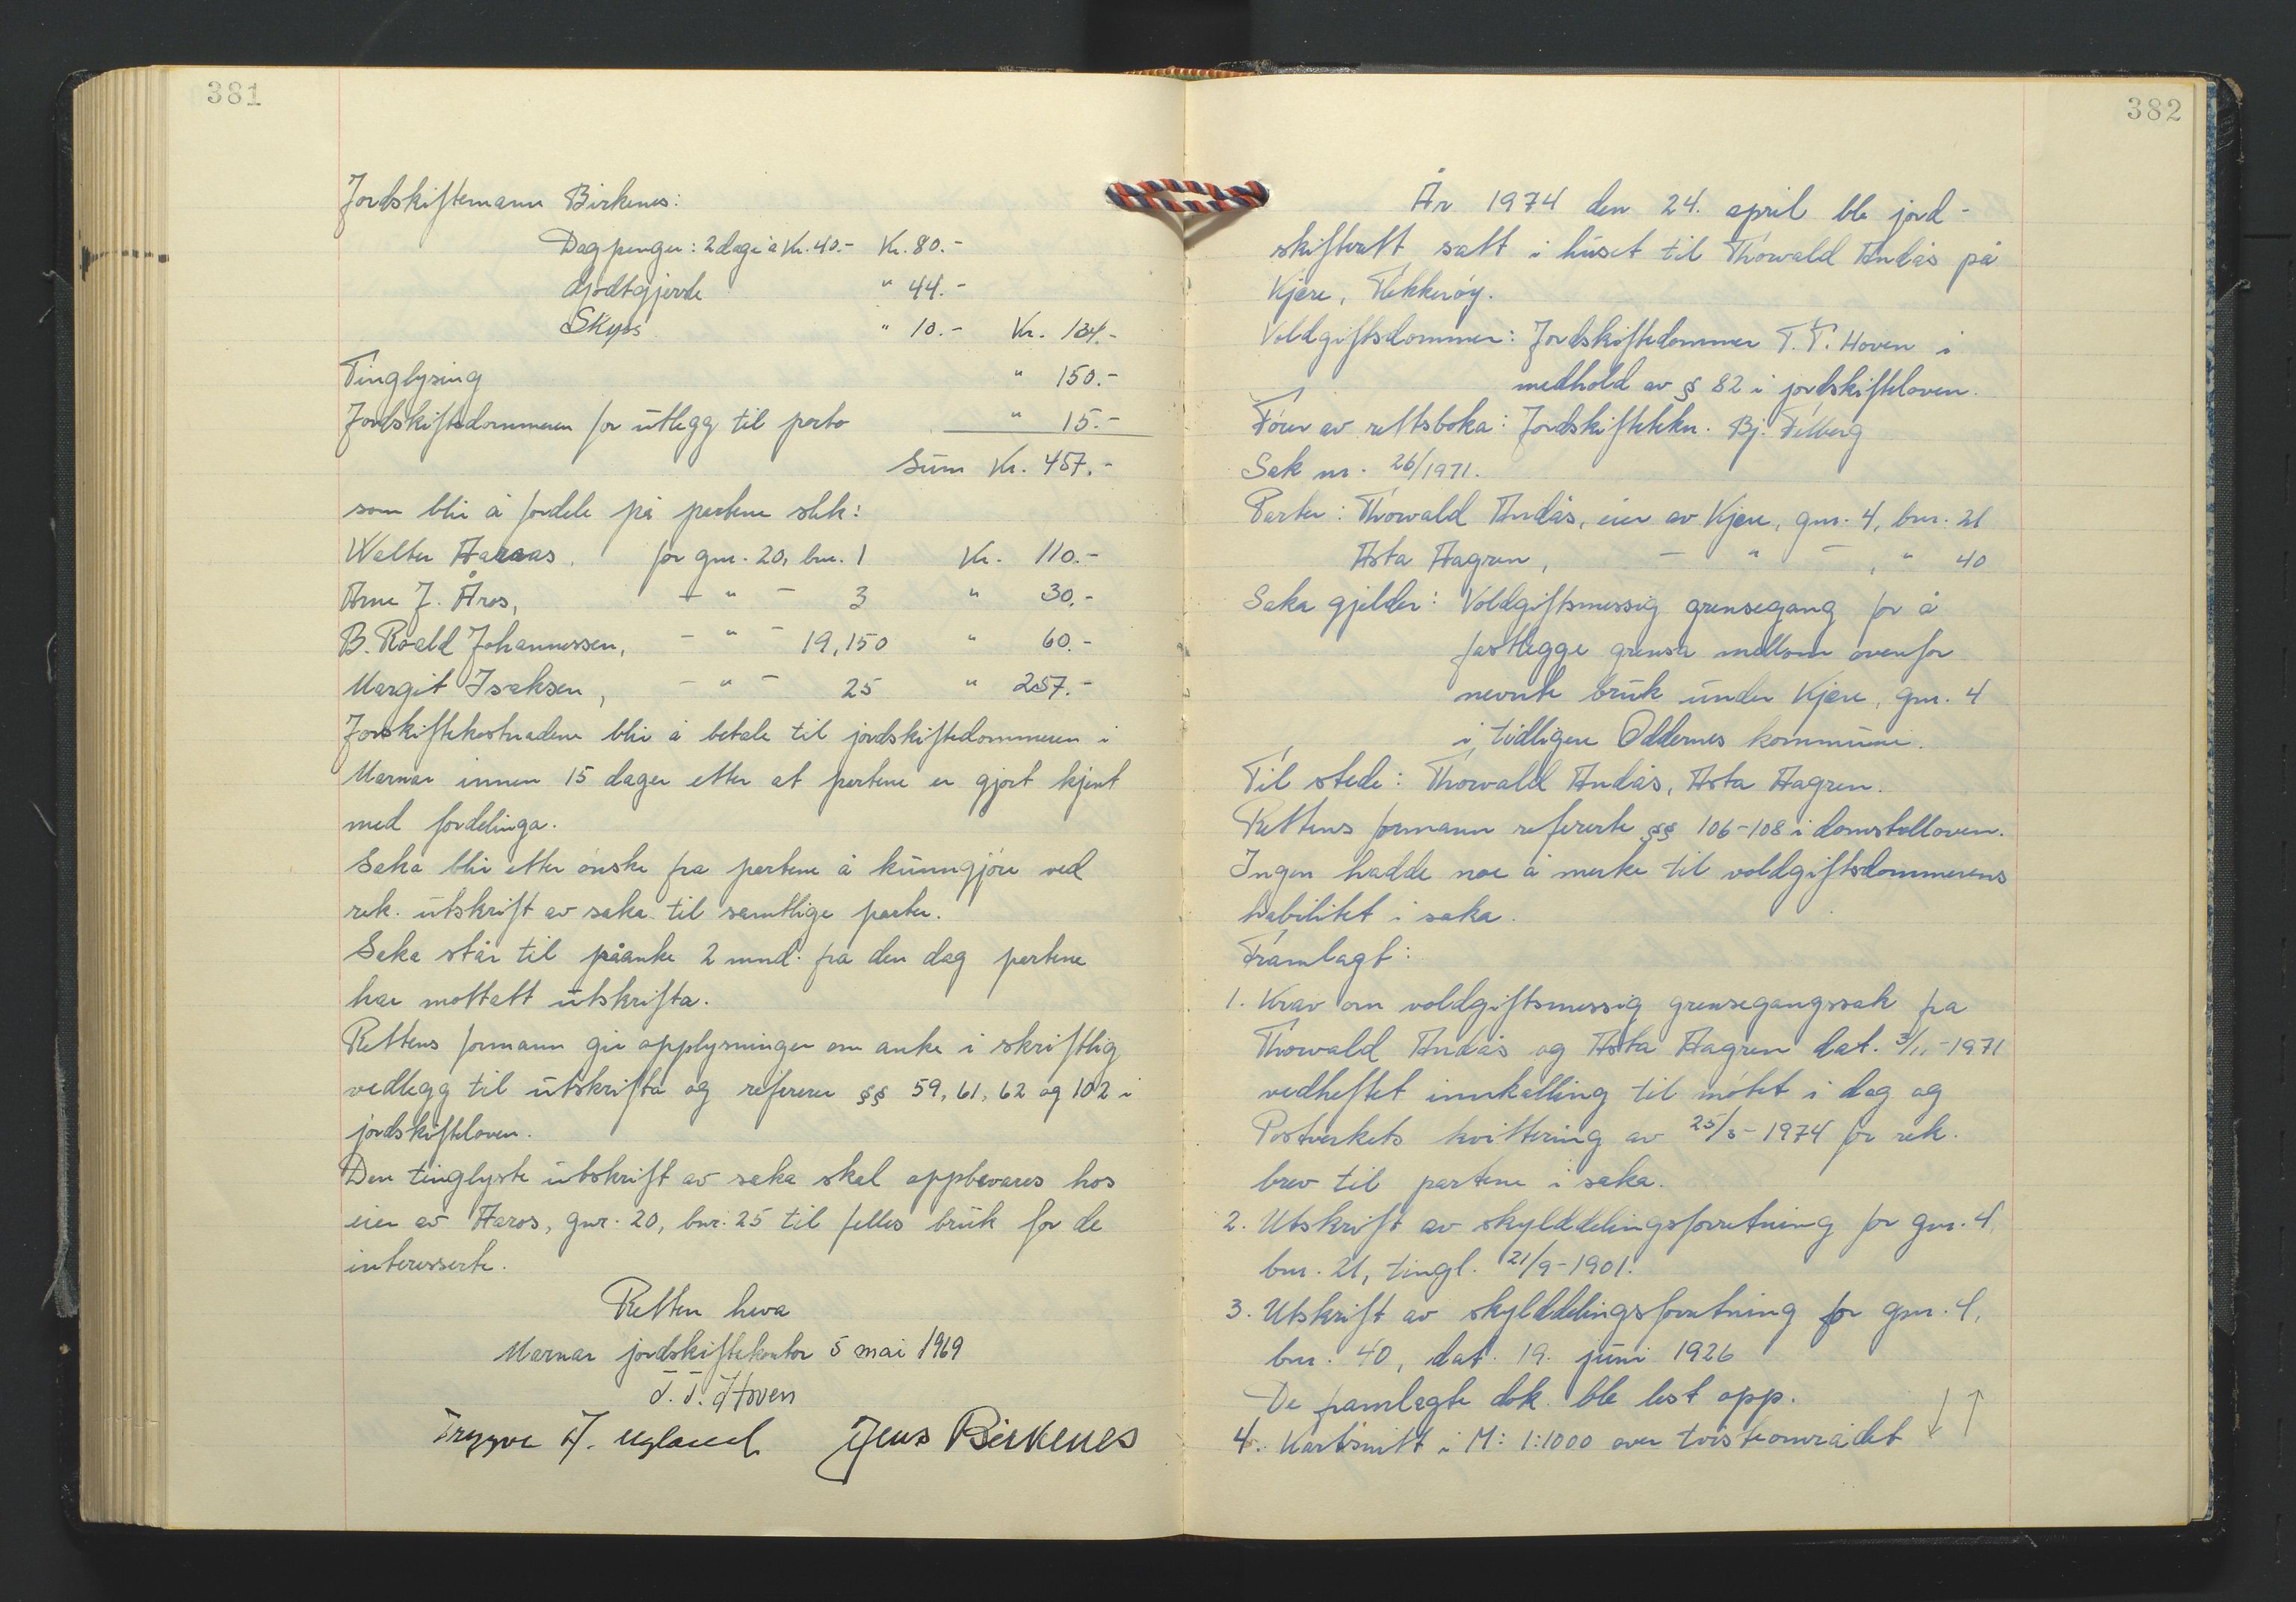 381
Jordskiftemann Birkenes:
Dagpenger: 2 dage à Kr. 40.- Kr. 80.-
Godtgjerde " 44.-
Skyss " 10.- Kr. 134.-
Tinglysing " 150.-
Jordskiftedommeren for utlegg til porto " 15.-
Sum Kr. 457.-
som blir å fordele på partene slik:
Walter Aaraas, for gnr. 20, bnr. 1 Kr. 110.-
Arne J. Åros, - " - 3 " 30.-
B. Roald Johannessen, - " - 19,150 " 60.-
Margit Isaksen, - " - 25 " 257.-
Jorskiftekostnadene blir å betale til jordskiftedommeren i
Marnar innen 15 dager etter at partene er gjort kjent
med fordelinga.
Saka blir etter ønske fra partene å kunngjøre ved
rek. utskrift av saka til samtlige parter.
Saka står til påanke 2 mnd. fra den dag partene
har mottatt utskrifta.
Rettens formann gir opplysninger om anke i skriftlig
vedlegg til utskrifta og referer §§ 59, 61, 62 og 102 i
jordskifteloven.
Den tinglyste utskrift av saka skal oppbevares hos
eier av Aaros, gnr. 20, bnr. 25 til felles bruk for de
interesserte.
Retten heva
Marnar jordskiftekontor 5 mai 1969
T. T. Hoven
Trygve A. Ugland Jens Birkenes
382
År 1974 den 24. april ble jord-
skifterett satt i huset til Thorvald Andås på
Kjære, Flekkerøy.
Voldgiftsdommer: Jordskiftedommer T. T. Hoven i
medhold av § 82 i jordskifteloven.
Fører av rettsboka: Jordskiftetekn. Bj. Felberg
Sak nr. 26/1971.
Parter: Thorvald Andås, eier av Kjære, gnr. 4, bnr. 21
Asta Aagren, - " - , " 40
Saka gjelder: Voldgiftsmessig grensegang for å
fastlegge grensa mellom ovenfor
nevnte bruk under Kjære, gnr. 4
i tidligere Oddernes kommune.
Til stede: Thorvald Andås, Asta Aagren.
Rettens formann refererte §§ 106-108 i domstolloven.
Ingen hadde noe å merke til voldgiftsdommerens
habilitet i saka.
Framlagt:
1. Krav om voldgiftsmessig grensegangssak fra
Thorvald Andås og Asta Aagren dat. 3/11-1971
vedheftet innkalling til møtet i dag og
Postverkets kvittering av 25/3-1974 for rek.
brev til partene i saka.
2. Utskrift av skylddelingsforretning for gnr. 4,
bnr. 21, tingl. 21/9-1901.
3. Utskrift av skylddelingsforretning for gnr. 4,
bnr. 40, dat. 19. juni 1926
De framlagte dok. ble lest opp.
4. Kartsnitt i M: 1:1000 over tvisteområdet ↓ ↑